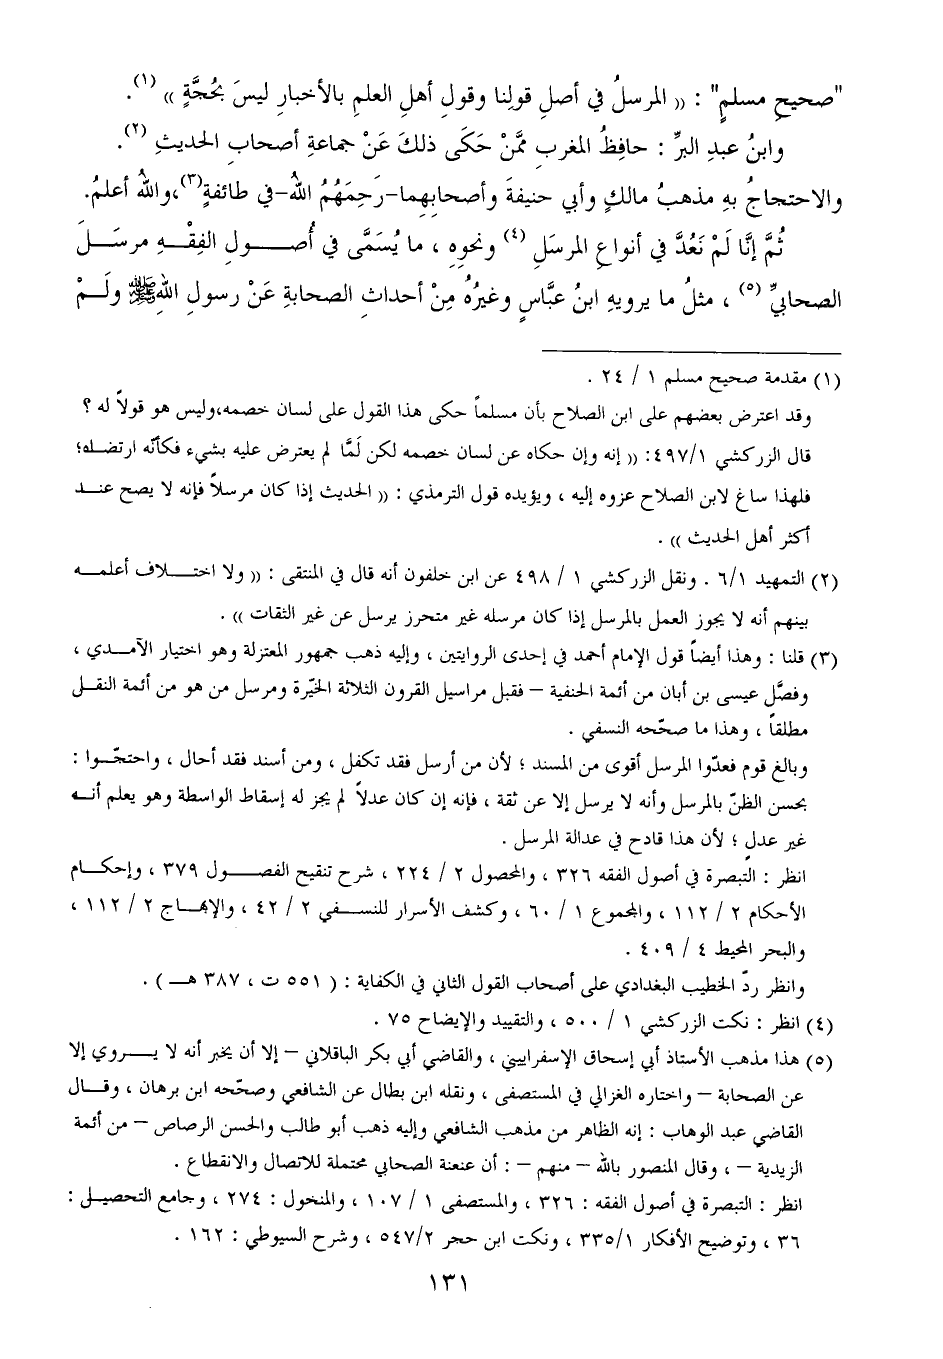 "صحيحِ مسلمٍ" : (( المرسلُ في أصلِ قولِنا وقولِ أهلِ العلمِ بالأخبارِ ليسَ بحُجَّةٍ )) (١).
وابنُ عبدِ البرِّ : حافِظُ المغربِ ممَّنْ حَكَى ذلكَ عَنْ جماعةِ أصحابِ الحديثِ (٢).
والاحتجاجُ بهِ مذهبُ مالكٍ وأبي حنيفةَ وأصحابِهما-رَحِمَهُمُ اللهُ-في طائفةٍ(٣)،واللهُ أعلمُ.
ثُمَّ إنَّا لَمْ نَعُدَّ في أنواعِ المرسَلِ (٤) ونحوِهِ ، ما يُسَمَّى في أُصولِ الفِقْهِ مرسَلَ
الصحابيِّ (٥) ، مثلُ ما يرويهِ ابنُ عبَّاسٍ وغيرُهُ مِنْ أحداثِ الصحابةِ عَنْ رسولِ اللهِﷺ ولَمْ
(١) مقدمة صحيح مسلم ١ / ٢٤ .
وقد اعترض بعضهم على ابن الصلاح بأن مسلماً حكى هذا القول على لسان خصمه،وليس هو قولاً له ؟
قال الزركشي ٤٩٧/١: (( إنه وإن حكاه عن لسان خصمه لكن لَمَّا لم يعترض عليه بشيء فكأنّه ارتضاه؛
فلهذا ساغ لابن الصلاح عزوه إليه ، ويؤيده قول الترمذي : (( الحديث إذا كان مرسلاً فإنه لا يصح عند
أكثر أهل الحديث )) .
(٢) التمهيد ٦/١ . ونقل الزركشي ١ / ٤٩٨ عن ابن خلفون أنه قال في المنتقى : (( ولا اختلاف أعلمه
بينهم أنه لا يجوز العمل بالمرسل إذا كان مرسله غير متحرز يرسل عن غير الثقات )) .
(٣) قلنا : وهذا أيضاً قول الإمام أحمد في إحدى الروايتين ، وإليه ذهب جمهور المعتزلة وهو اختيار الآمدي ،
وفصَّل عيسى بن أبان من أئمة الحنفية – فقبل مراسيل القرون الثلاثة الخيّرة ومرسل من هو من أئمة النقل
مطلقاً ، وهذا ما صحّحه النسفي .
وبالغ قوم فعدّوا المرسل أقوى من المسند ؛ لأن من أرسل فقد تكفل ، ومن أسند فقد أحال ، واحتجّوا :
بحسن الظنّ بالمرسل وأنه لا يرسل إلا عن ثقة ، فإنه إن كان عدلاً لم يجز له إسقاط الواسطة وهو يعلم أنه
غير عدل ؛ لأن هذا قادح في عدالة المرسل .
انظر : التبصرة في أصول الفقه ٣٢٦ ، والمحصول ٢ / ٢٢٤ ، شرح تنقيح الفصول ٣٧٩ ، وإحكام
الأحكام ٢ / ١١٢ ، والمجموع ١ / ٦٠ ، وكشف الأسرار للنسفي ٢ / ٤٢ ، والإبهاج ٢ / ١١٢ ،
والبحر المحيط ٤ / ٤٠٩ .
وانظر ردّ الخطيب البغدادي على أصحاب القول الثاني في الكفاية : ( ٥٥١ ت ، ٣٨٧ هـ ) .
(٤) انظر : نكت الزركشي ١ / ٥٠٠ ، والتقييد والإيضاح ٧٥ .
(٥) هذا مذهب الأستاذ أبي إسحاق الإسفراييني ، والقاضي أبي بكر الباقلاني – إلا أن يخبر أنه لا يروي إلا
عن الصحابة – واختاره الغزالي في المستصفى ، ونقله ابن بطال عن الشافعي وصحّحه ابن برهان ، وقال
القاضي عبد الوهاب : إنه الظاهر من مذهب الشافعي وإليه ذهب أبو طالب والحسن الرصاص – من أئمة
الزيدية – ، وقال المنصور بالله – منهم – : أن عنعنة الصحابي محتملة للاتصال والانقطاع .
انظر : التبصرة في أصول الفقه : ٣٢٦ ، والمستصفى ١ / ١٠٧ ، والمنخول : ٢٧٤ ، وجامع التحصيل :
٣٦ ، وتوضيح الأفكار ٣٣٥/١ ، ونكت ابن حجر ٥٤٧/٢ ، وشرح السيوطي : ١٦٢ .
١٣١